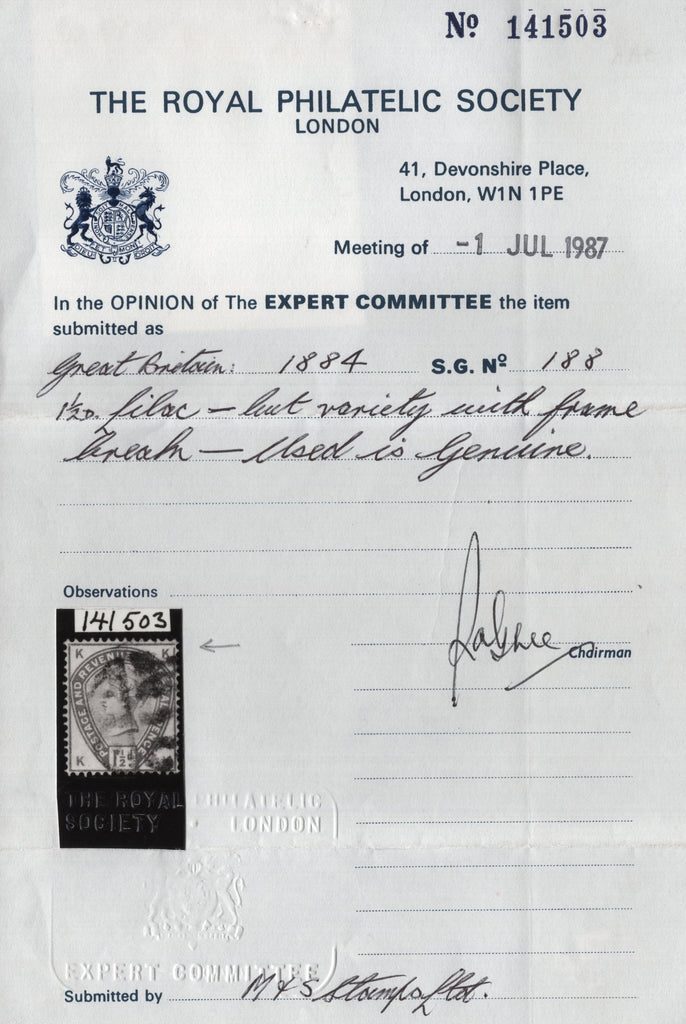 Nº 141503
THE ROYAL PHILATELIC SOCIETY
LONDON
41, Devonshire Place,
London, W1N 1PE
Meeting of -1 JUL 1987
In the OPINION of The EXPERT COMMITTEE the item
submitted as
Great Britain: 1884 S.G. Nº 188
1½D. lilac - but variety with frame
break - Used is Genuine.
Observations
141503
Chairman
K K
POSTAGE AND REVENUE
K 1½d
THE ROYAL PHILATELIC
SOCIETY · LONDON
EXPERT COMMITTEE
Submitted by M & S Stamps Ltd.